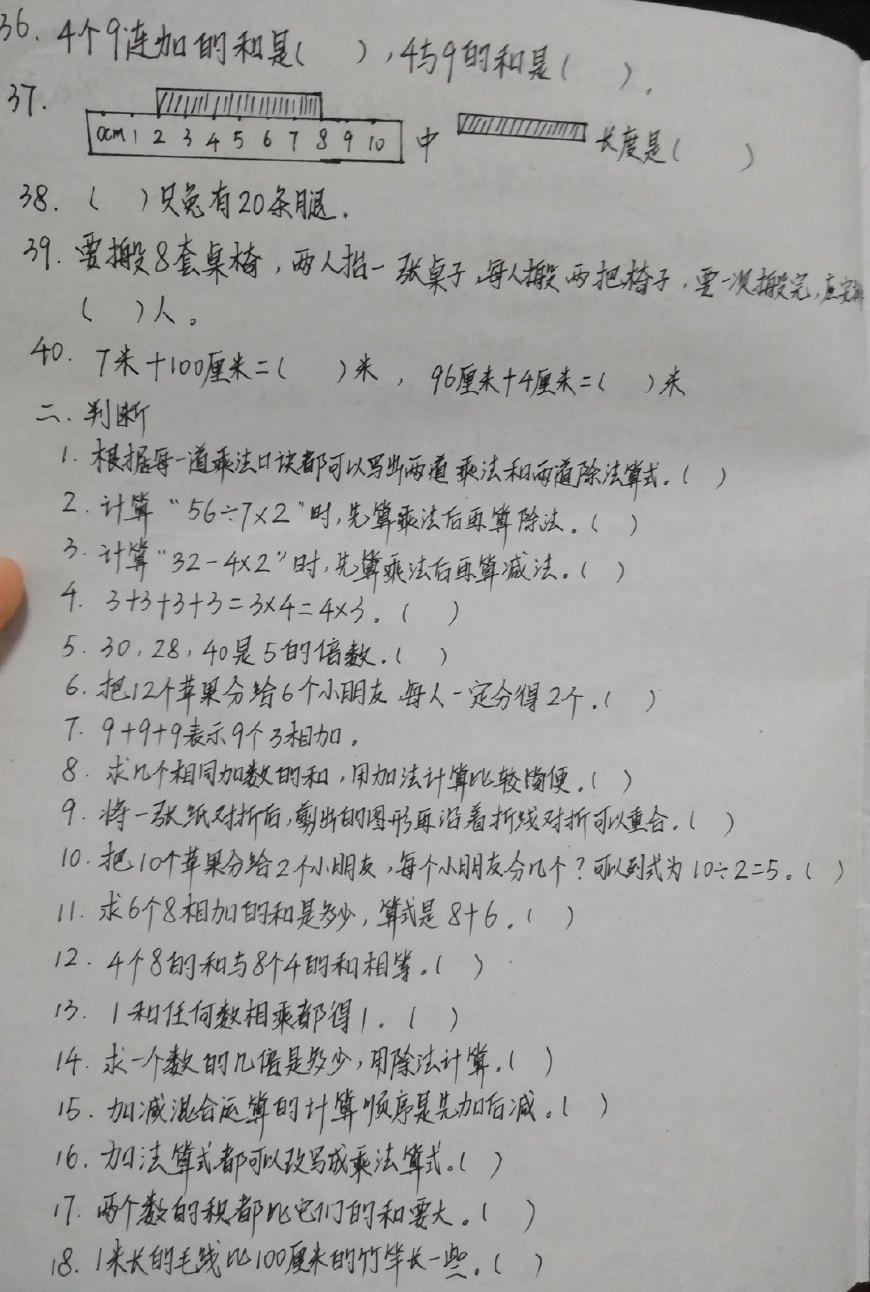 36. 4个9连加的和是(  ),4与9的和是(  )。
37.
0cm 1 2 3 4 5 6 7 8 9 10 中 长度是(  )
38. (  )只兔有20条腿.
39. 要搬8套桌椅,两人抬一张桌子,每人搬两把椅子,要一次搬完,应安排
(  )人。
40. 7米+100厘米=(  )米, 96厘米+4厘米=(  )米
二.判断
1.根据每一道乘法口诀都可以写出两道乘法和两道除法算式.(  )
2.计算“56÷7×2”时,先算乘法后再算除法。(  )
3.计算“32-4×2”时,先算乘法后再算减法。(  )
4. 3+3+3+3=3×4=4×3.(  )
5. 30,28,40是5的倍数.(  )
6.把12个苹果分给6个小朋友,每人一定分得2个.(  )
7. 9+9+9表示9个3相加。
8.求几个相同加数的和,用加法计算比较简便.(  )
9.将一张纸对折后,剪出的图形再沿着折线对折可以重合.(  )
10.把10个苹果分给2个小朋友,每个小朋友分几个?可以列式为10÷2=5。(  )
11.求6个8相加的和是多少,算式是8+6.(  )
12. 4个8的和与8个4的和相等.(  )
13. 1和任何数相乘都得1.(  )
14.求一个数的几倍是多少,用除法计算.(  )
15.加减混合运算的计算顺序是先加后减。(  )
16.加法算式都可以改写成乘法算式.(  )
17.两个数的积都比它们的和要大。(  )
18. 1米长的毛线比100厘米的竹竿长一些.(  )